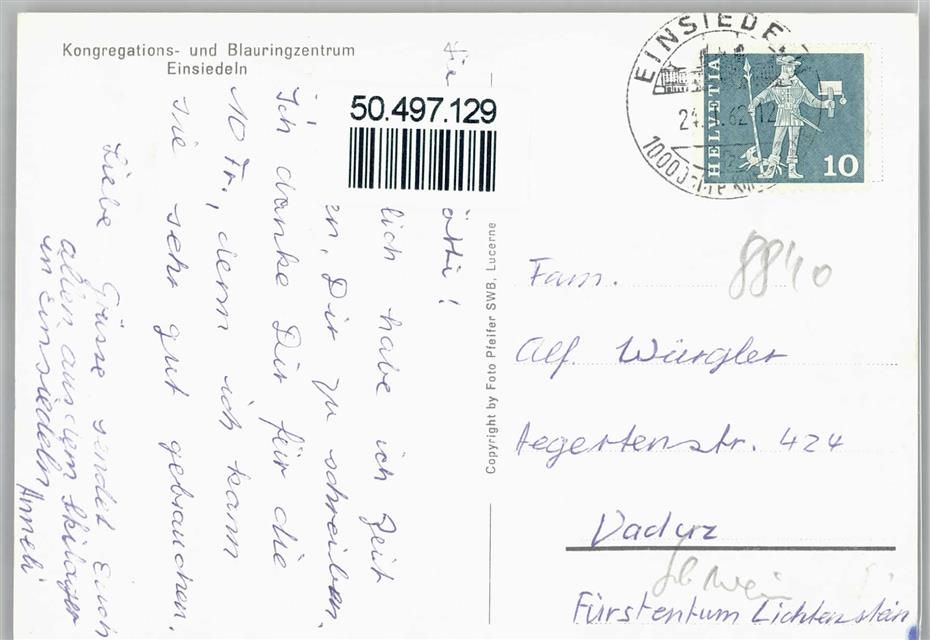 Kongregations- und Blauringzentrum
Einsiedeln
50.497.129
ötti!
lich habe ich Zeit
Dir zu schreiben.
Ich danke Dir für die
10 Fr., denn ich kann
sie sehr gut gebrauchen.
Liebe Grüsse sendet Euch
allen aus dem Skilager
in Einsiedeln
Anneli
Copyright by Foto Pfeifer SWB, Lucerne
EINSIEDE
62-12
HELVETIA
10
8840
Fam.
Alf. Würgler
Aegertenstr. 424
Vaduz
Fürstentum Lichtenstein